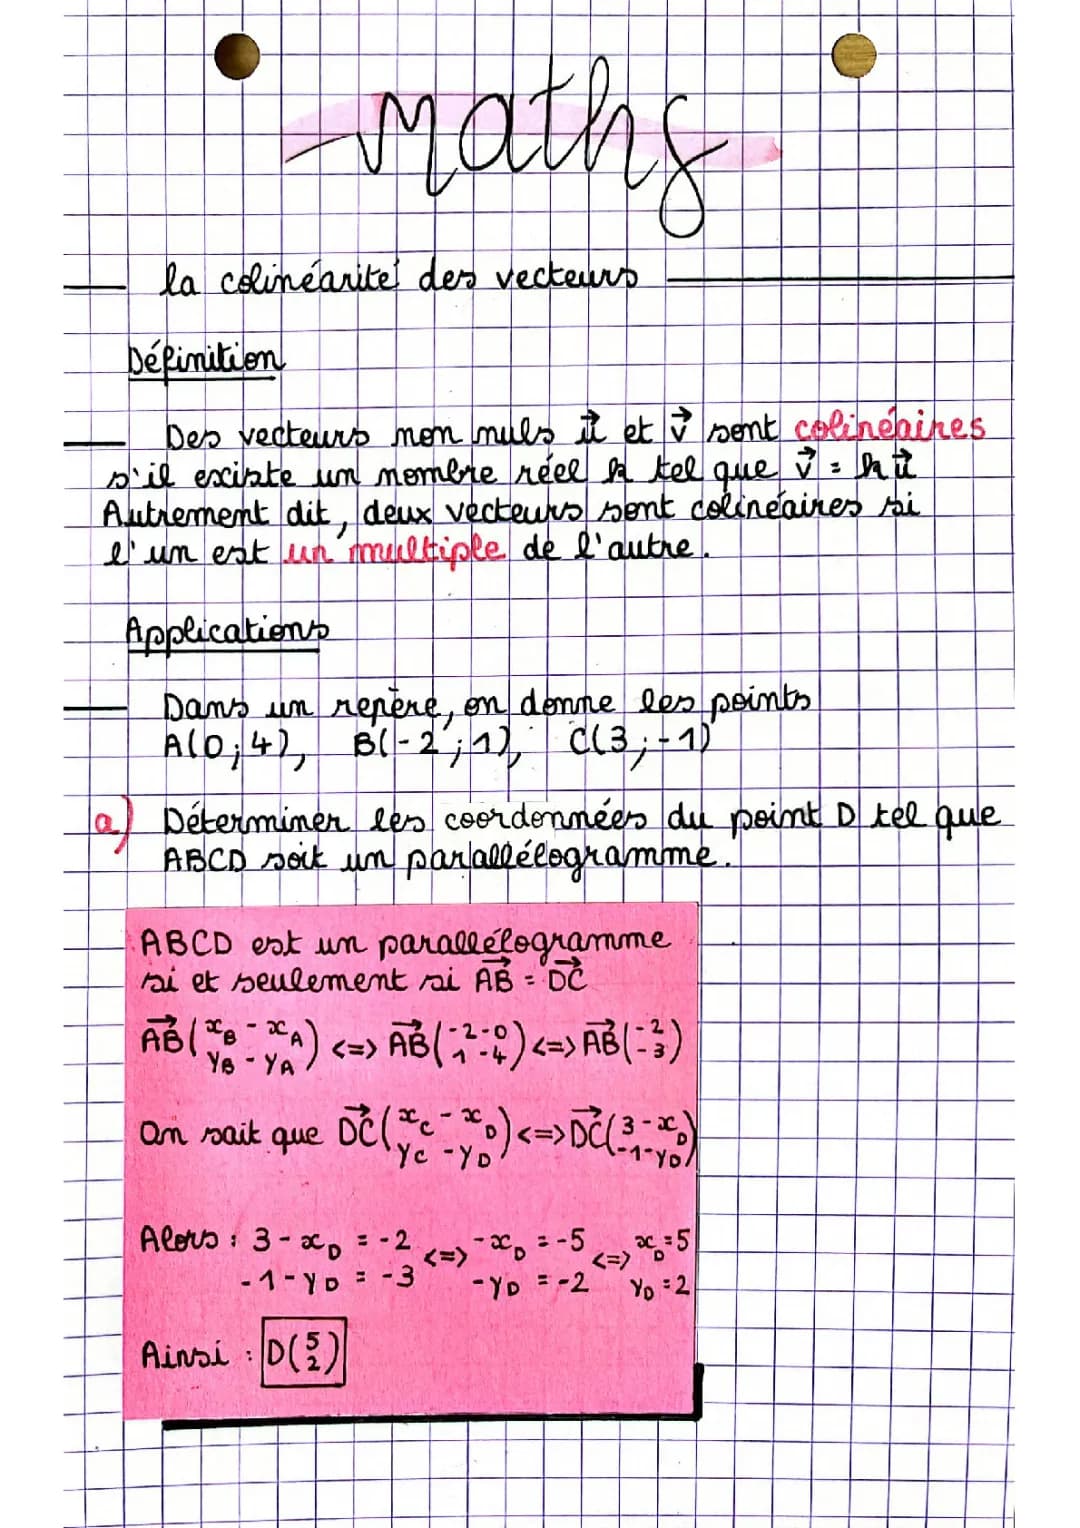 Maths
la colinéarité des vecteurs
Définition
Des vecteurs non nuls u⃗ et v⃗ sont colinéaires
s'il existe un nombre réel k tel que v⃗ = k u⃗
Autrement dit, deux vecteurs sont colinéaires si
l'un est un multiple de l'autre.
Applications
Dans un repère, on donne les points
A(0;4), B(-2;1), C(3;-1)
a) Déterminer les coordonnées du point D tel que
ABCD soit un parallélogramme.
ABCD est un parallélogramme
si et seulement si AB⃗ = DC⃗
AB⃗ (xB - xA / yB - yA) <=> AB⃗ (-2-0 / 1-4) <=> AB⃗ (-2 / -3)
On sait que DC⃗ (xC - xD / yC - yD) <=> DC⃗ (3 - xD / -1 - yD)
Alors : 3 - xD = -2 <=> -xD = -5 <=> xD = 5
-1 - yD = -3 -yD = -2 yD = 2
Ainsi : D(5 / 2)